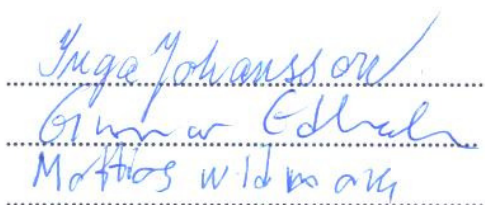 Inga Johansson
Gunnar
Mattias Widmark